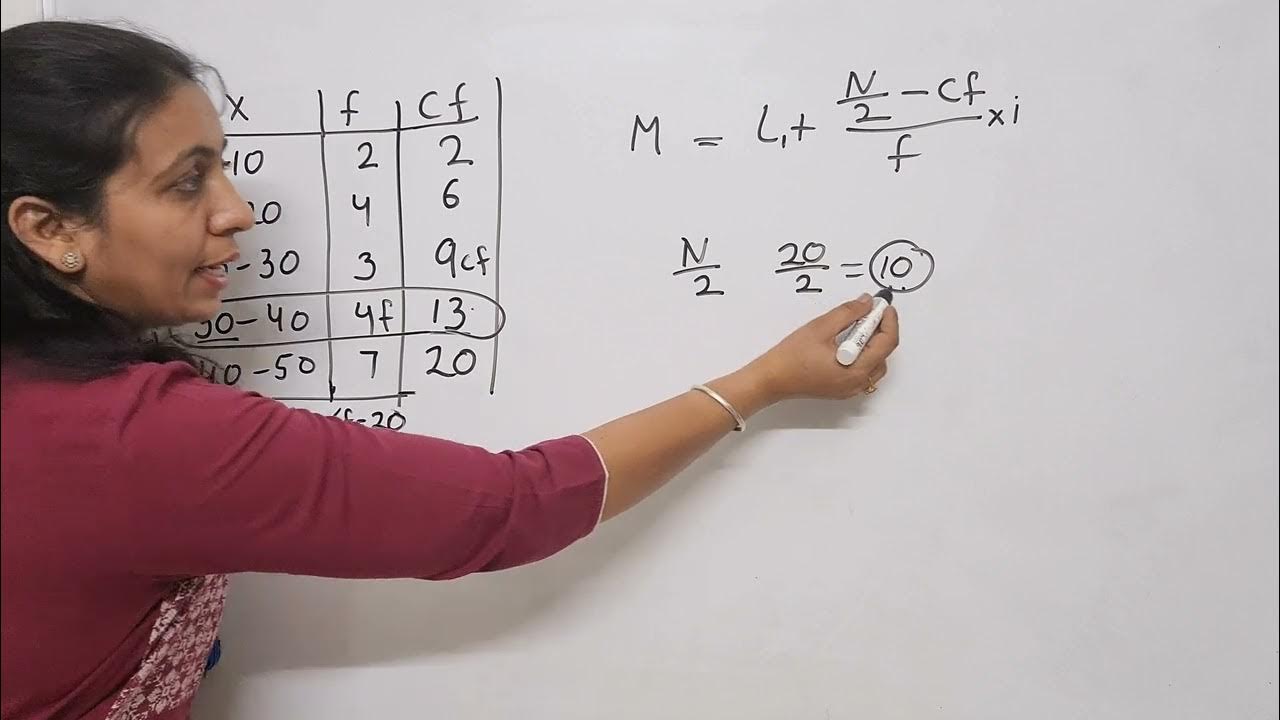 x f Cf
-10 2 2
4 6
-30 3 9cf
30-40 4f 13
40-50 7 20
f=20
M = L₁ + (N/2 - Cf)/f × i
N/2 20/2 = 10